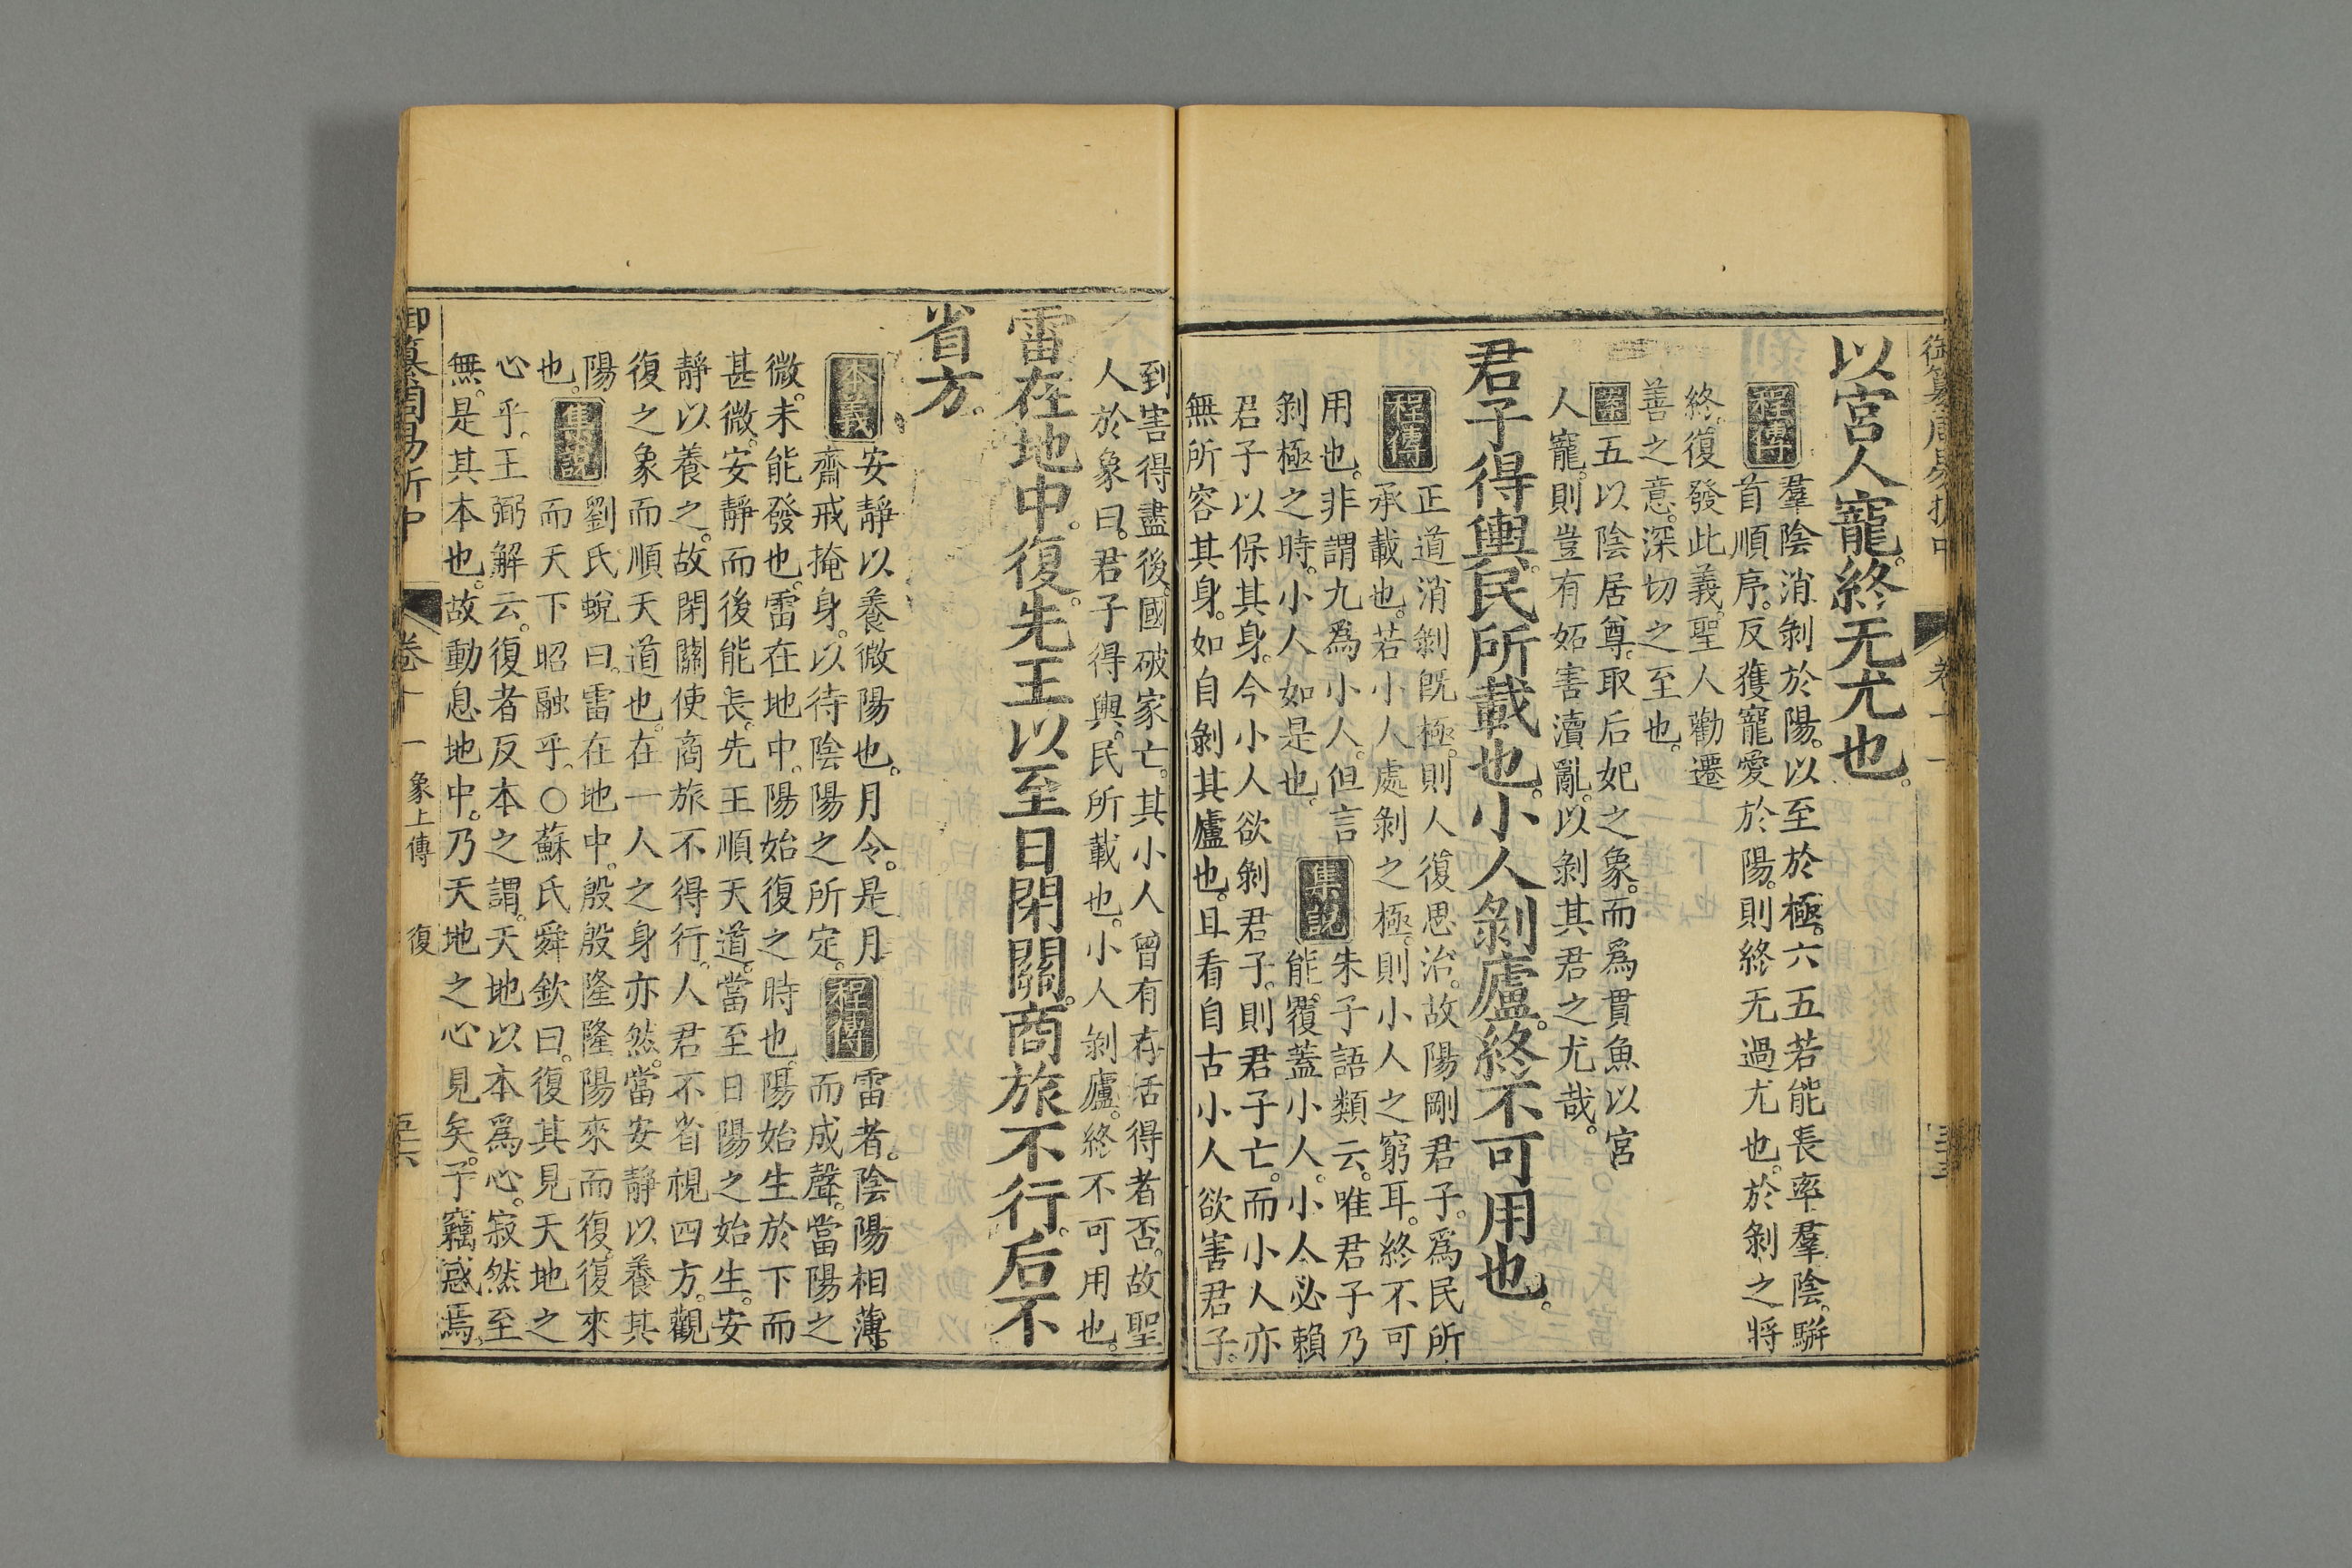 御纂周易折中
卷十一
以宮人寵。終无尤也。
程傳
羣陰消剝於陽。以至於極。六五若能長率羣陰。駢
首順序。反獲寵愛於陽。則終无過尤也。於剝之將
終。復發此義。聖人勸遷
善之意。深切之至也。
案
五以陰居尊。取后妃之象。而爲貫魚以宮
人寵。則豈有妬害瀆亂。以剝其君之尤哉。
君子得輿。民所載也。小人剝廬。終不可用也。
程傳
正道消剝旣極。則人復思治。故陽剛君子。爲民所
承載也。若小人處剝之極。則小人之窮耳。終不可
用也。非謂九爲小人。但言
剝極之時。小人如是也。
集說
朱子語類云。唯君子乃
能覆蓋小人。小人必賴
君子以保其身。今小人欲剝君子。則君子亡。而小人亦
無所容其身。如自剝其廬也。且看自古小人欲害君子。
到害得盡後。國破家亡。其小人曾有存活得者否。故聖
人於象曰。君子得輿。民所載也。小人剝廬。終不可用也。
雷在地中。復。先王以至日閉關。商旅不行。后不
省方。
本義
安靜以養微陽也。月令。是月
齋戒掩身。以待陰陽之所定。
程傳
雷者。陰陽相薄。
而成聲。當陽之
微。未能發也。雷在地中。陽始復之時也。陽始生於下而
甚微。安靜而後能長。先王順天道。當至日陽之始生。安
靜以養之。故閉關使商旅不得行。人君不省視四方。觀
復之象而順天道也。在一人之身亦然。當安靜以養其
陽
也。
集說
劉氏蛻曰。雷在地中。殷殷隆隆。陽來而復。復來
而天下昭融乎。○蘇氏舜欽曰。復其見天地之
心乎。王弼解云。復者反本之謂。天地以本爲心。寂然至
無。是其本也。故動息地中。乃天地之心見矣。予竊惑焉。
御纂周易折中
卷十一
象上傳
復